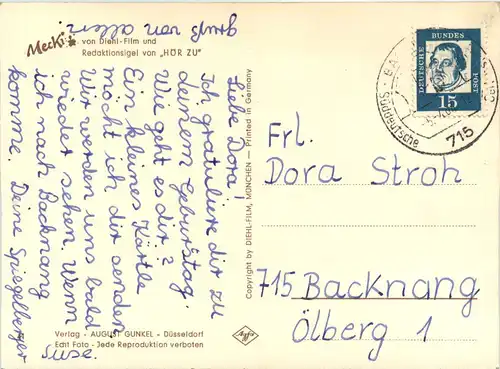 Mecki
von Diehl-Film und
Redaktionsigel von „HÖR ZU"
Liebe Dora!
Ich gratuliere dir zu
deinem Geburtstag.
Wie geht es dir?
Ein kleines Kärtle
möcht ich dir senden
Wir werden uns bald
wieder sehen. Wenn
ich nach Backnang
komme. Deine Spiegelberger
Suse.
gruß von allen
Verlag - AUGUST GUNKEL - Düsseldorf
Echt Foto - Jede Reproduktion verboten
Copyright by DIEHL-FILM, MÜNCHEN — Printed in Germany
DEUTSCHE BUNDESPOST
15
Süddeutsche
715
Frl.
Dora Stroh
715 Backnang
Ölberg 1